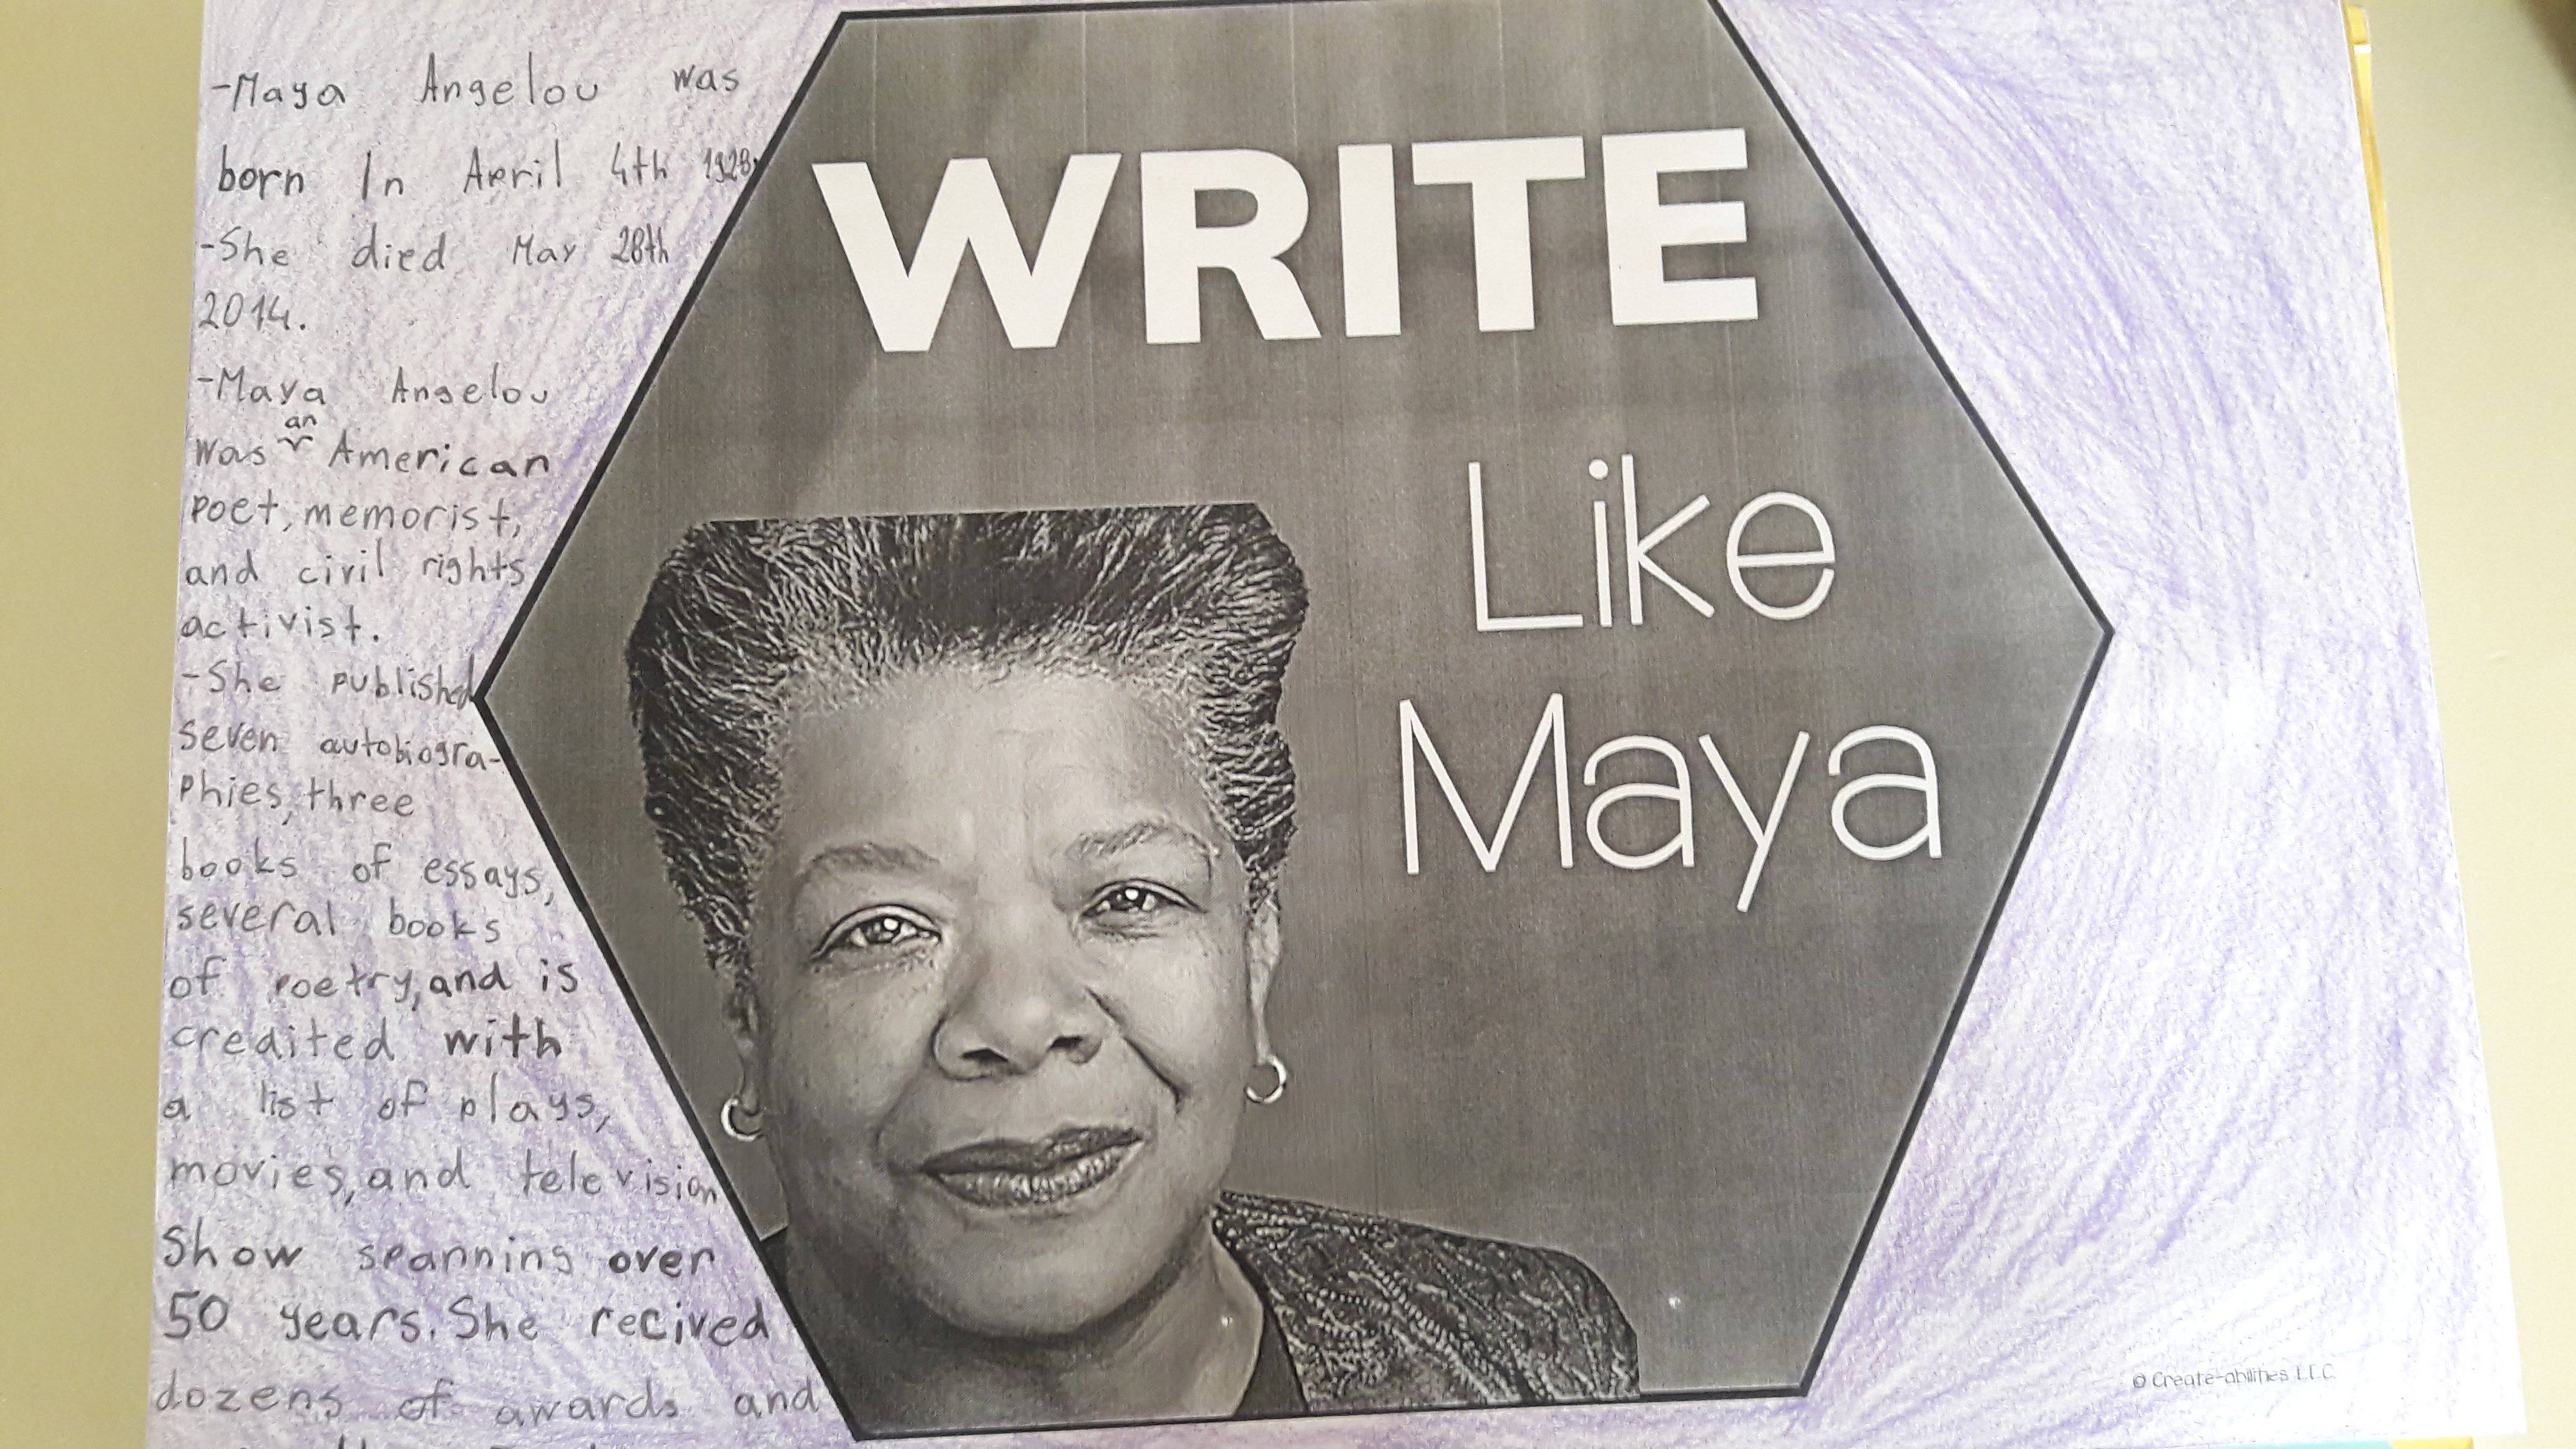 -Maya Angelou was
born In April 4th 1928
-She died May 28th
2014.
-Maya Angelou
an
was American
poet, memorist,
and civil rights
activist.
-She published
seven autobiogra-
phies, three
books of essays,
several books
of poetry, and is
credited with
a list of plays,
movies, and television
Show spanning over
50 years. She recived
dozens of awards and
WRITE
Like
Maya
© Create-abilities LLC.